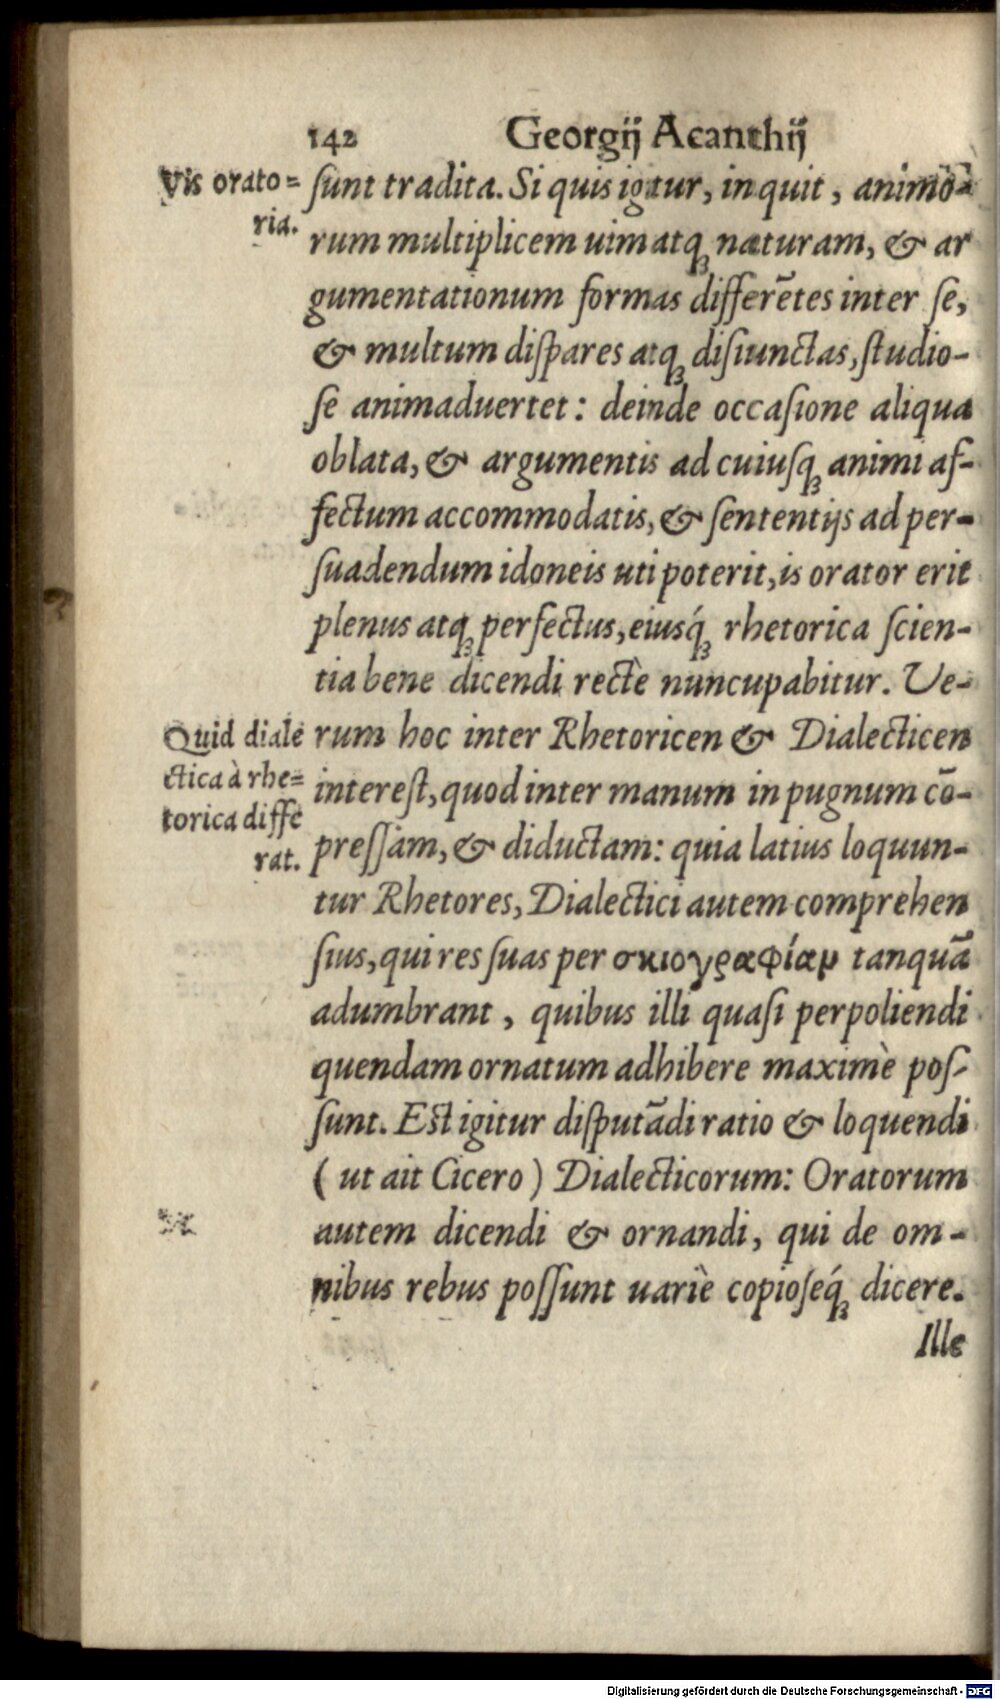 142 Georgij Acanthij
Vis orato=
ria.
sunt tradita. Si quis igitur, inquit, animo-
rum multiplicem uim atq; naturam, & ar
gumentationum formas differētes inter se,
& multum dispares atq; disiunctas, studio-
se animaduertet: deinde occasione aliqua
oblata, & argumentis ad cuiusq; animi af-
fectum accommodatis, & sententijs ad per-
suadendum idoneis uti poterit, is orator erit
plenus atq; perfectus, eiusq́; rhetorica scien-
tia bene dicendi rectè nuncupabitur. Ve-
Quid diale
ctica à rhe=
torica diffe
rat.
rum hoc inter Rhetoricen & Dialecticen
interest, quod inter manum in pugnum cō-
pressam, & diductam: quia latius loquun-
tur Rhetores, Dialectici autem comprehen
sius, qui res suas per σκιογραφίαμ tanquā
adumbrant, quibus illi quasi perpoliendi
quendam ornatum adhibere maximè pos-
sunt. Est igitur disputādi ratio & loquendi
( ut ait Cicero ) Dialecticorum: Oratorum
autem dicendi & ornandi, qui de om-
nibus rebus possunt uariè copioseq́; dicere.
Ille
Digitalisierung gefördert durch die Deutsche Forschungsgemeinschaft - DFG